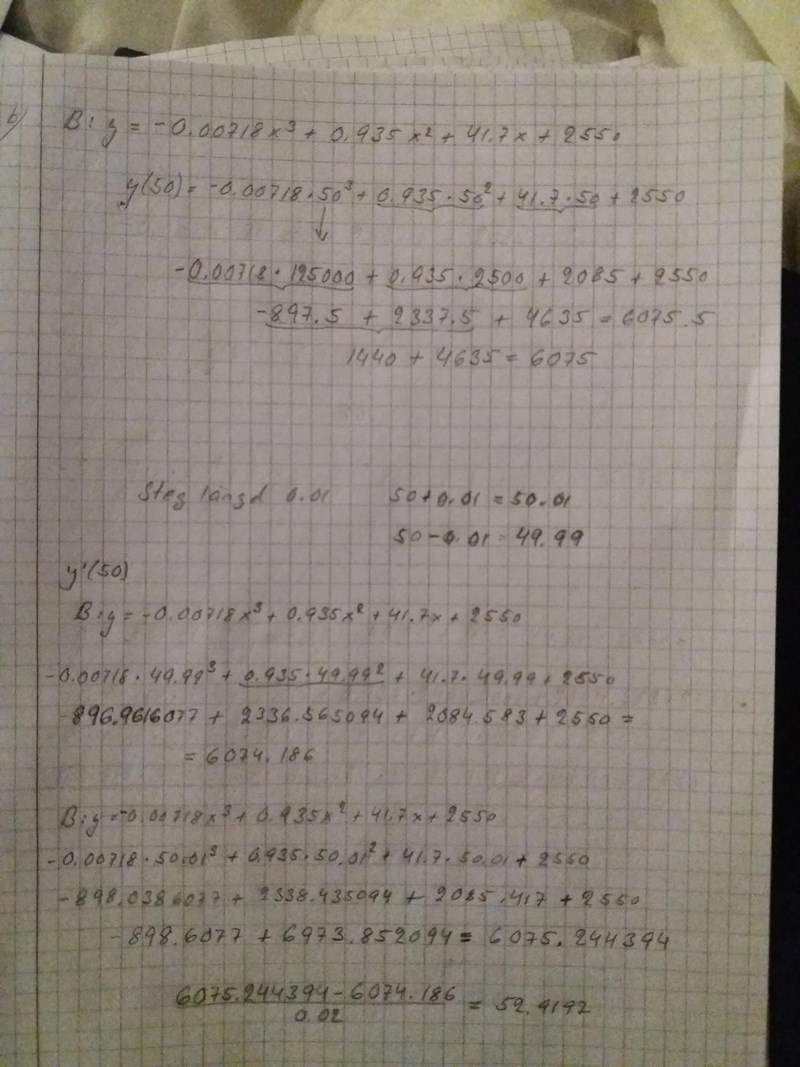 b)
B: y = -0.00718x³ + 0.935x² + 41.7x + 2550
y(50) = -0.00718·50³ + 0.935·50² + 41.7·50 + 2550
↓
-0.00718·125000 + 0.935·2500 + 2085 + 2550
-897.5 + 2337.5 + 4635 = 6075.5
1440 + 4635 = 6075
Steg längd 0.01 50+0.01 = 50.01
50-0.01 = 49.99
y'(50)
B: y = -0.00718x³ + 0.935x² + 41.7x + 2550
-0.00718·49.99³ + 0.935·49.99² + 41.7·49.99 + 2550
-896.9616077 + 2336.565094 + 2084.583 + 2550 =
= 6074.186
B: y = -0.00718x³ + 0.935x² + 41.7x + 2550
-0.00718·50.01³ + 0.935·50.01² + 41.7·50.01 + 2550
-898.0386077 + 2338.435094 + 2085.417 + 2550
-898.6077 + 6973.852094 = 6075.244394
6075.244394 - 6074.186 = 52.9192
0.02